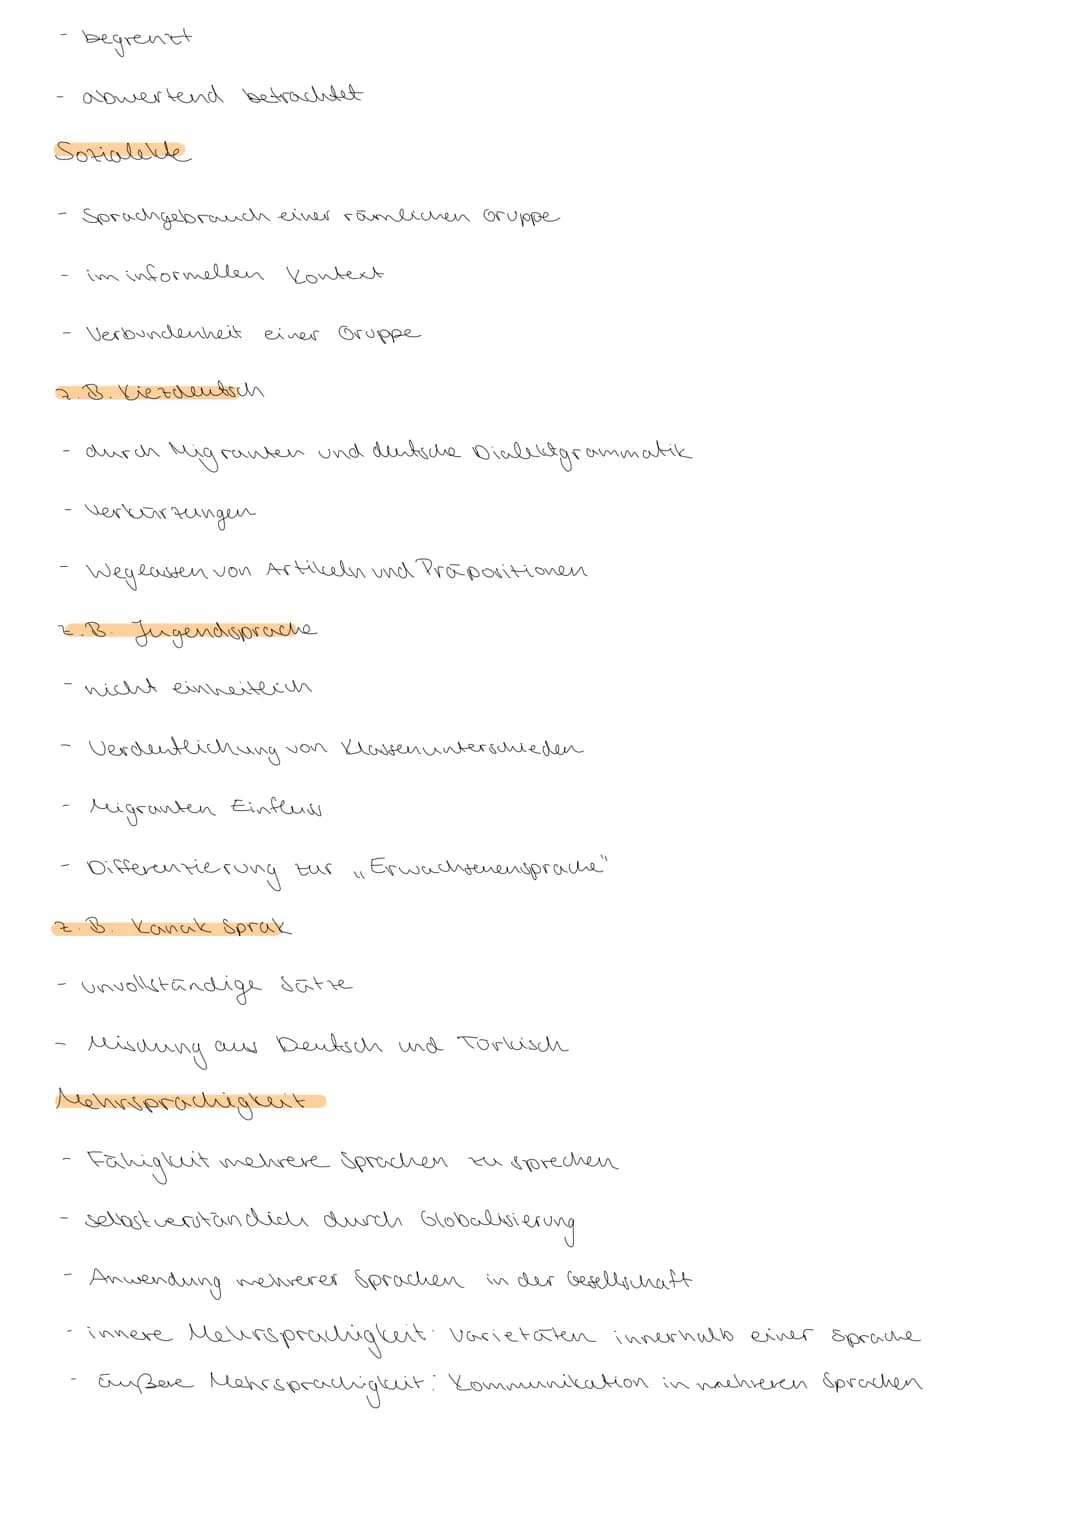 - begrenzt
- abwertend betrachtet
Sozialekte
- Sprachgebrauch einer rämlichen Gruppe
- im informellen Kontext
- Verbundenheit einer Gruppe
z.B. Kiezdeutsch
- durch Migranten und deutsche Dialektgrammatik
- Verkürzungen
- Weglassen von Artikeln und Präpositionen
z.B. Jugendsprache
- nicht einheitlich
- Verdeutlichung von Klassenunterschieden
- Migranten Einfluss
- Differenzierung zur „Erwachsenensprache"
z.B. Kanak Sprak
- unvollständige Sätze
- Mischung aus Deutsch und Türkisch
Mehrsprachigkeit
- Fähigkeit mehrere Sprachen zu sprechen
- selbstverständlich durch Globalisierung
- Anwendung mehrerer Sprachen in der Gesellschaft
- innere Mehrsprachigkeit: Varietäten innerhalb einer Sprache
- äußere Mehrsprachigkeit: Kommunikation in mehreren Sprachen